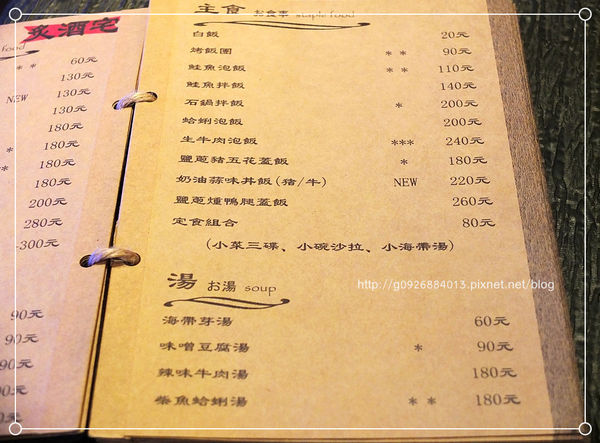 炙酒宅
food
** 60元
130元
NEW 130元
130元
180元
* 180元
* 180元
180元
200元
280元
-300元
90元
90元
90元
90元
90元
主食 お食事 staple food
白飯 20元
烤飯團 ** 90元
鮭魚泡飯 ** 110元
鮭魚拌飯 140元
石鍋拌飯 * 200元
蛤蜊泡飯 200元
生牛肉泡飯 *** 240元
鹽蔥豬五花蓋飯 * 180元
奶油蒜味丼飯(豬/牛) NEW 220元
鹽蔥燻鴨腿蓋飯 260元
定食組合 80元
(小菜三碟、小碗沙拉、小海帶湯)
湯 お湯 soup
http://g0926884013.pixnet.net/blog
海帶芽湯 60元
味噌豆腐湯 * 90元
辣味牛肉湯 180元
柴魚蛤蜊湯 ** 180元